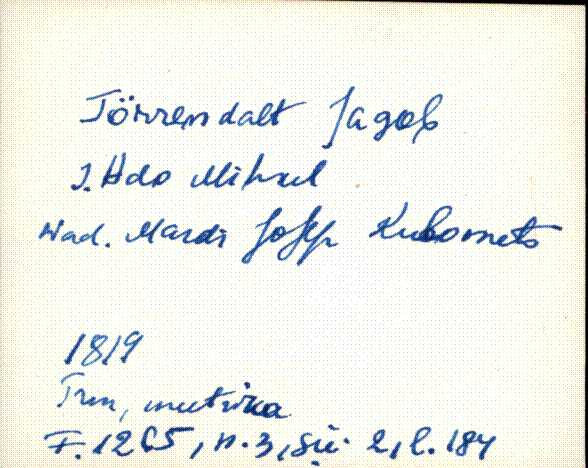 Törrendalt Jagob
J. Ado Mihkel
Wad. Mardi Josep Kubornets
1819
Trm, meetrika
F. 1265, n. 3, sü. 2, l. 184